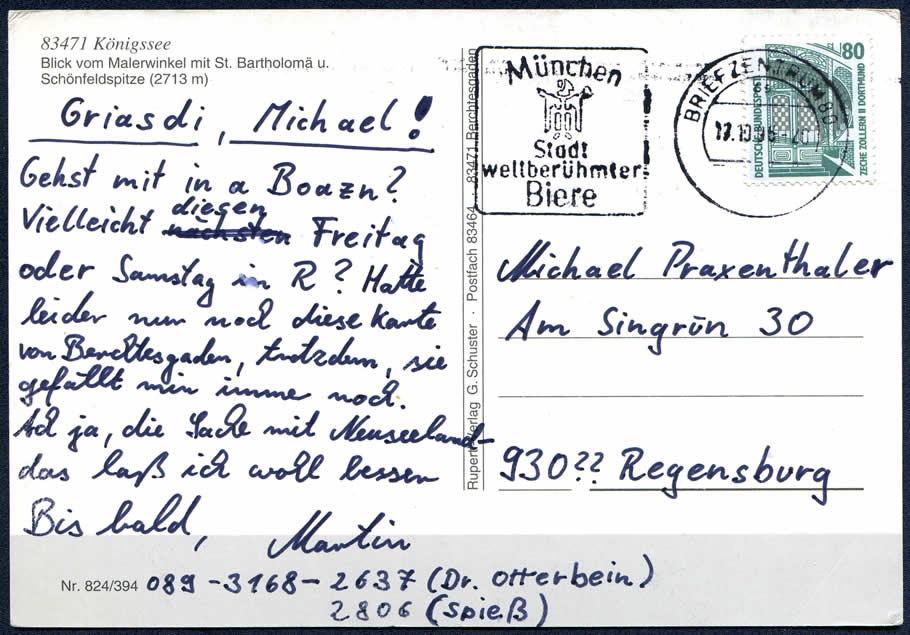 83471 Königssee
Blick vom Malerwinkel mit St. Bartholomä u.
Schönfeldspitze (2713 m)
Griasdi, Michael!
Gehst mit in a Boazn?
Vielleicht diesen Freitag
oder Samstag in R? Hatte
leider nur noch diese Karte
von Berchtesgaden, trotzdem, sie
gefällt mir immer noch.
Ach ja, die Sache mit Neuseeland-
das laß ich wohl besser
Bis bald,
Martin
Nr. 824/394
089-3168-2637 (Dr. Otterbein)
2806 (Spieß)
Rupert-Verlag G. Schuster · Postfach 83464 83471 Berchtesgaden
München
Stadt
weltberühmter
Biere
BRIEFZENTRUM 80
80
DEUTSCHE BUNDESPOST
ZECHE ZOLLERN II DORTMUND
Michael Praxenthaler
Am Singrün 30
930?? Regensburg